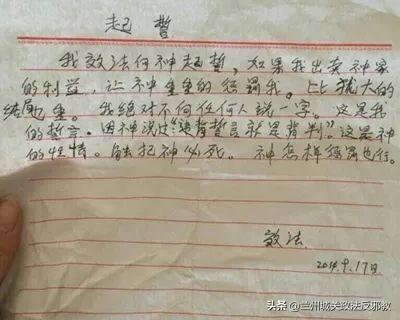 起誓
我效法向神起誓，如果我出卖神家
的利益，让神重重的惩罚我。比犹大的
结局重。我绝对不向任何人说一字。这是我
的誓言。因神说过“违背誓言就是背判”这是神
的性情。触犯神必死。神怎样惩罚也行。
效法
2014.9.17日
@兰州城关政法反邪教